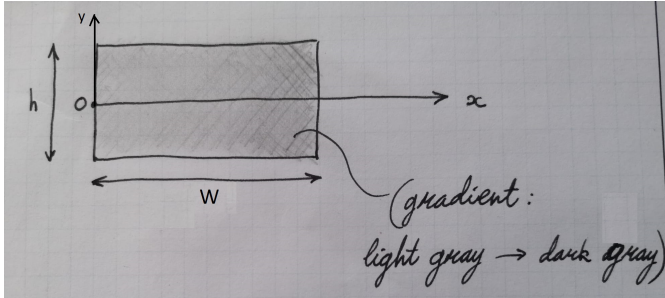 y
h
O
x
W
(gradient:
light gray → dark gray)